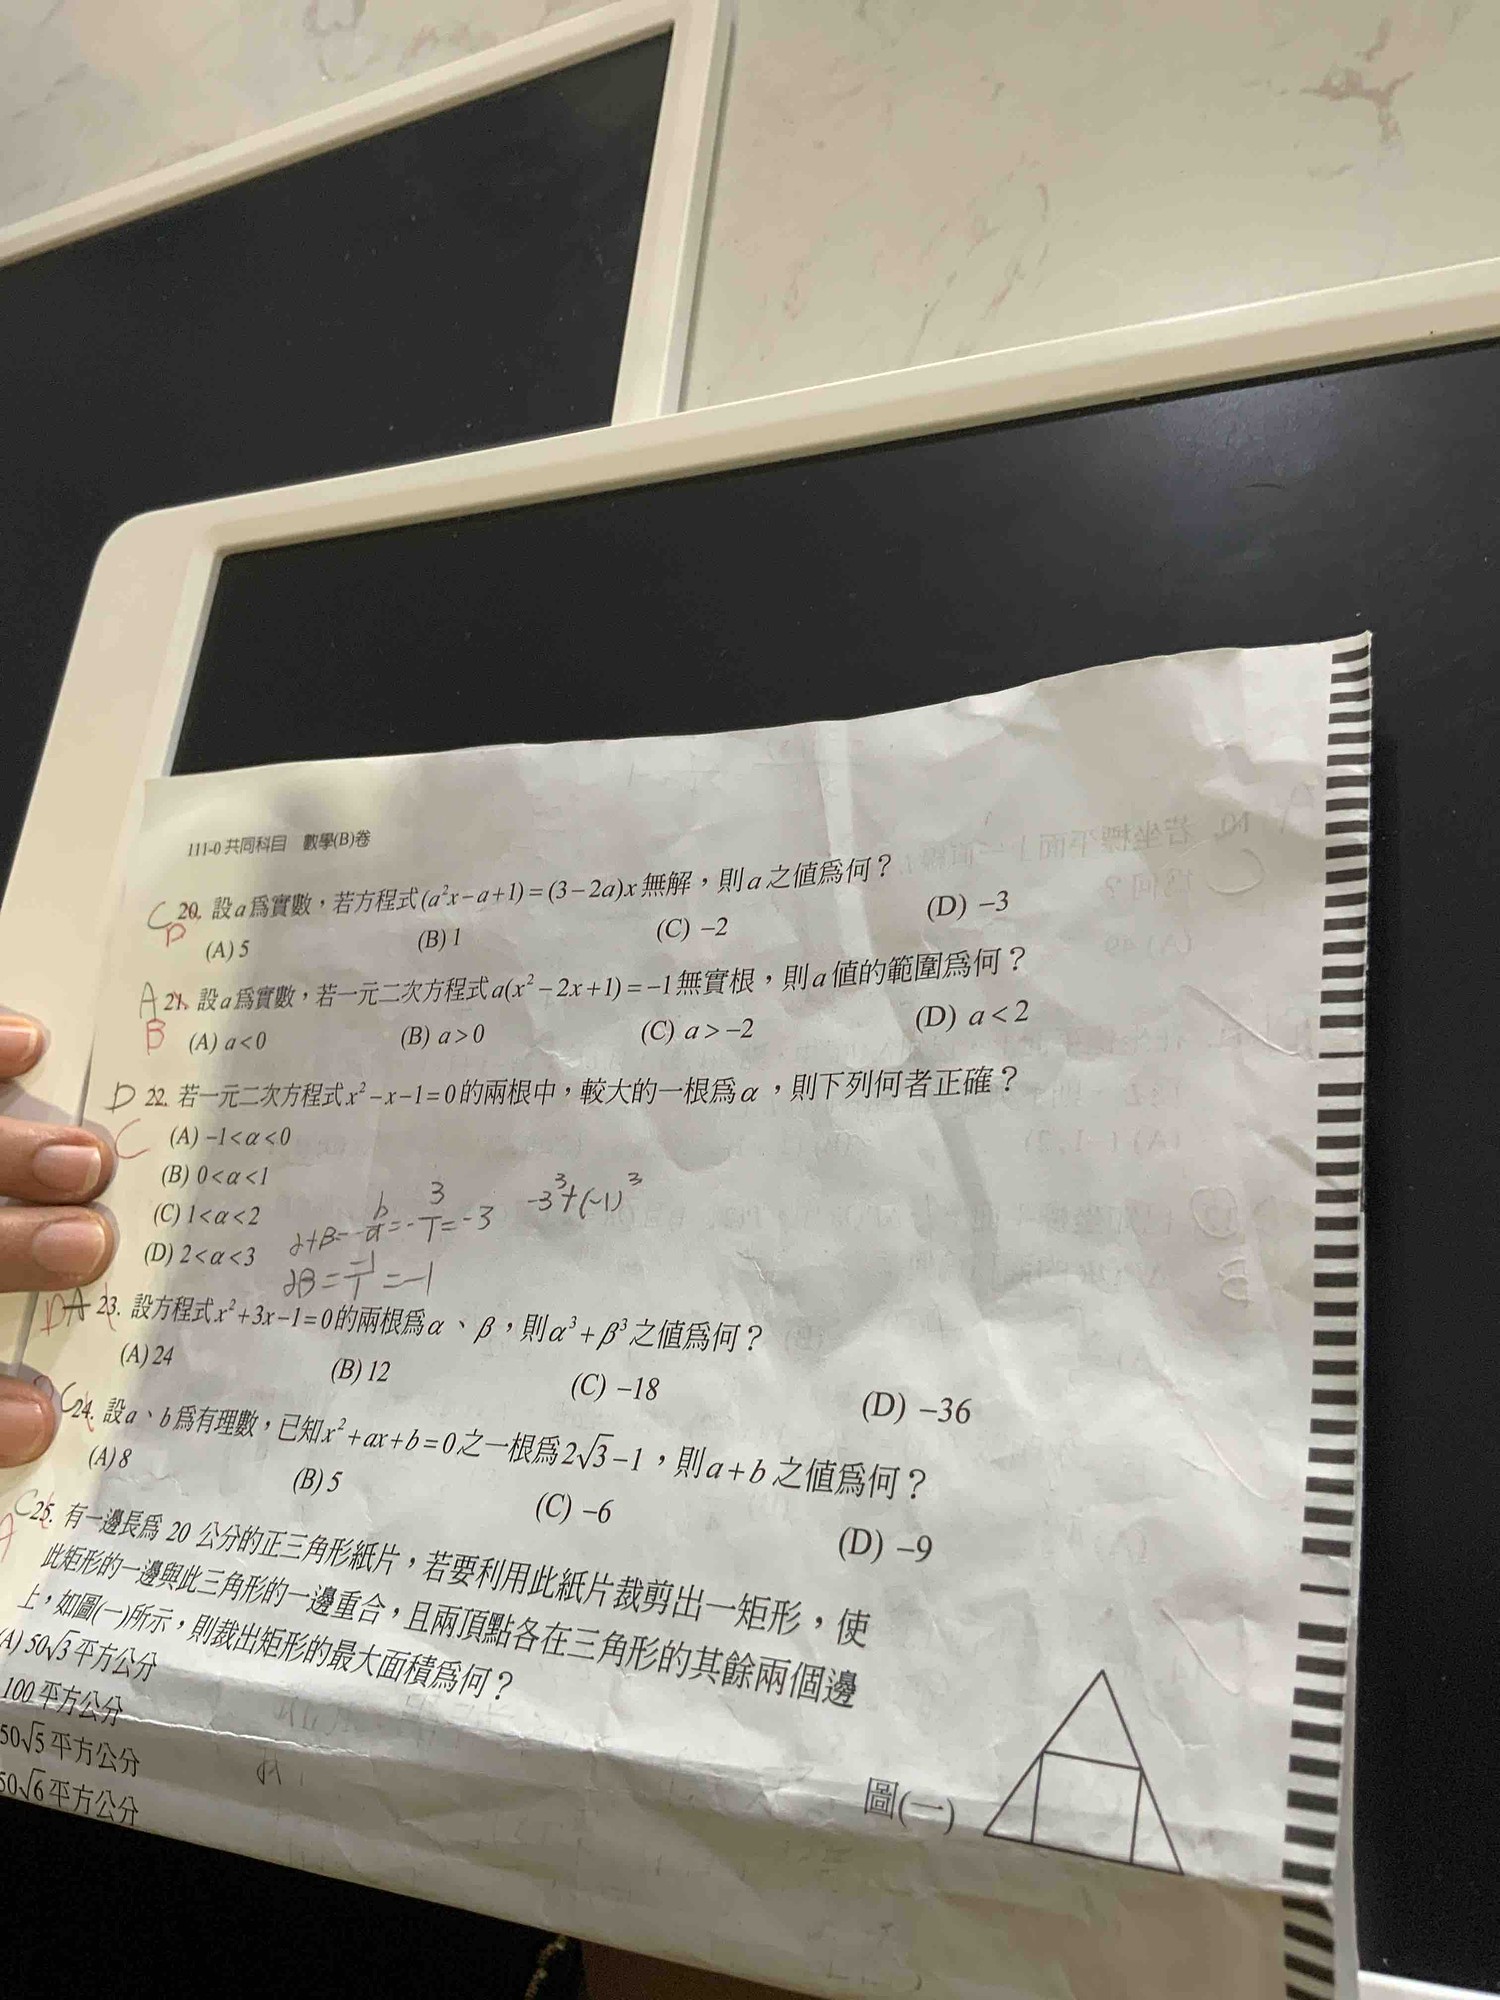 111-0 共同科目 數學(B)卷
C 20. 設a為實數，若方程式(a²x−a+1)=(3−2a)x無解，則a之值為何？
D (A) 5 (B) 1 (C) −2 (D) −3
A 21. 設a為實數，若一元二次方程式a(x²−2x+1)=−1無實根，則a值的範圍為何？
B (A) a<0 (B) a>0 (C) a>−2 (D) a<2
D 22. 若一元二次方程式x²−x−1=0的兩根中，較大的一根為α，則下列何者正確？
C (A) −1<α<0
(B) 0<α<1
(C) 1<α<2
(D) 2<α<3
α+β=-b/a=-3/1=-3 -3³+(-1)³
αβ=-1/1=-1
D A 23. 設方程式x²+3x−1=0的兩根為α、β，則α³+β³之值為何？
(A) 24 (B) 12 (C) −18 (D) −36
C 24. 設a、b為有理數，已知x²+ax+b=0之一根為2√3−1，則a+b之值為何？
(A) 8 (B) 5 (C) −6 (D) −9
C 25. 有一邊長為 20 公分的正三角形紙片，若要利用此紙片裁剪出一矩形，使
A 此矩形的一邊與此三角形的一邊重合，且兩頂點各在三角形的其餘兩個邊
上，如圖(一)所示，則裁出矩形的最大面積為何？
(A) 50√3 平方公分
100 平方公分
50√5 平方公分
50√6 平方公分
圖(一)